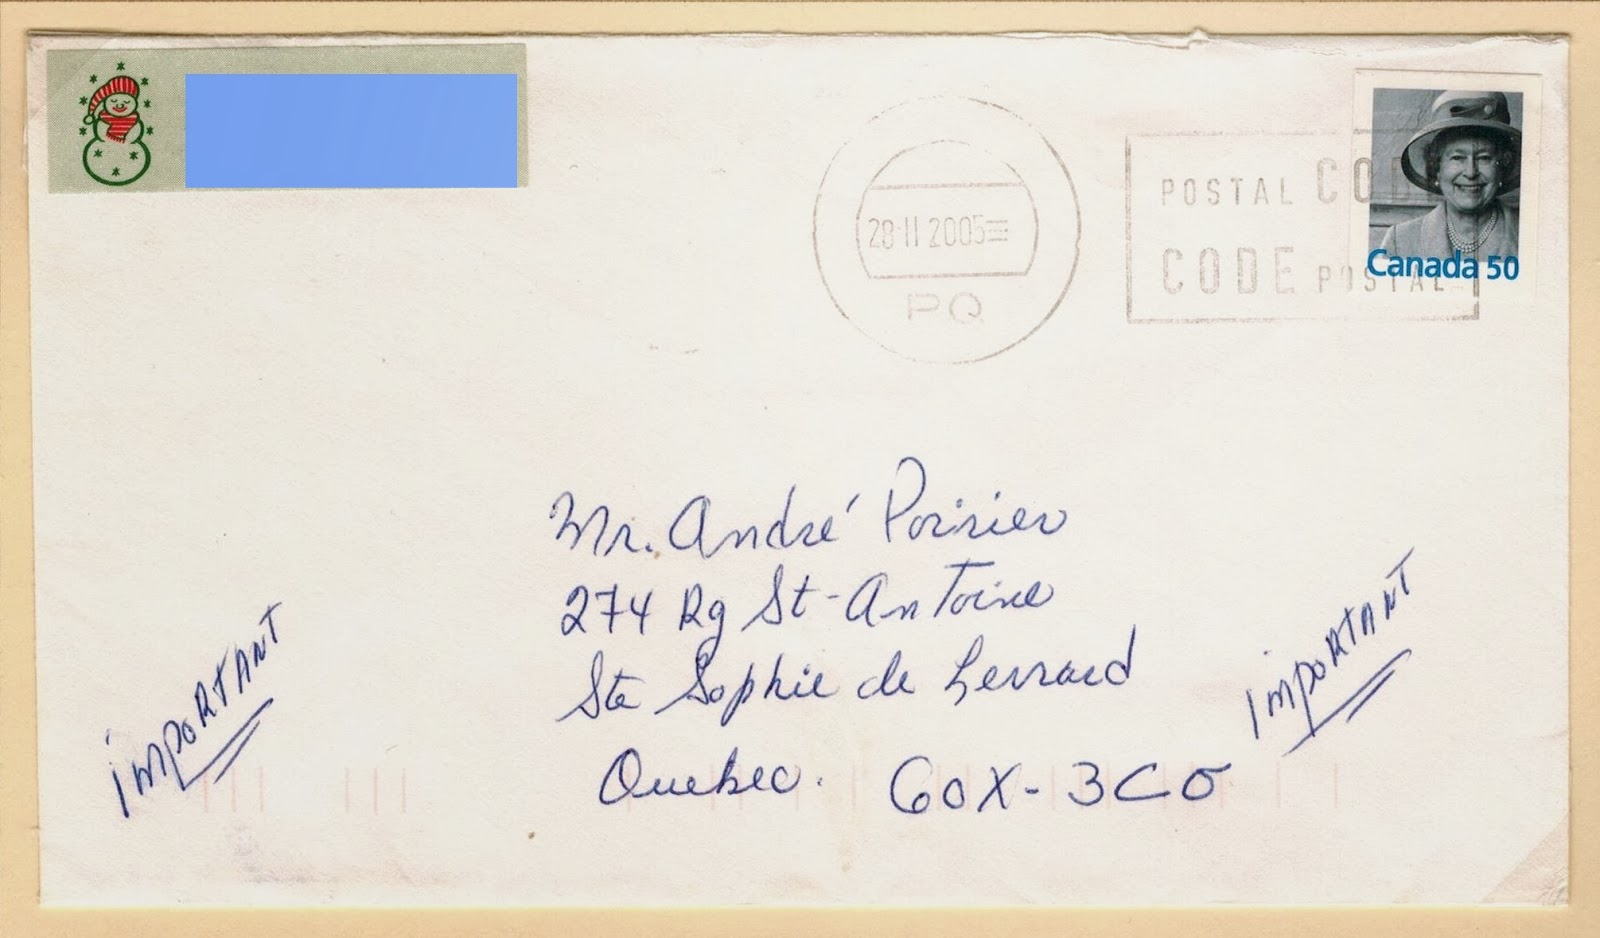 28·11 2005
PQ
POSTAL CODE
CODE POSTAL
Canada 50
Mr. André Poirier
274 Rg St-Antoine
Ste Sophie de Levrard
Quebec. G0X-3C0
IMPORTANT
IMPORTANT